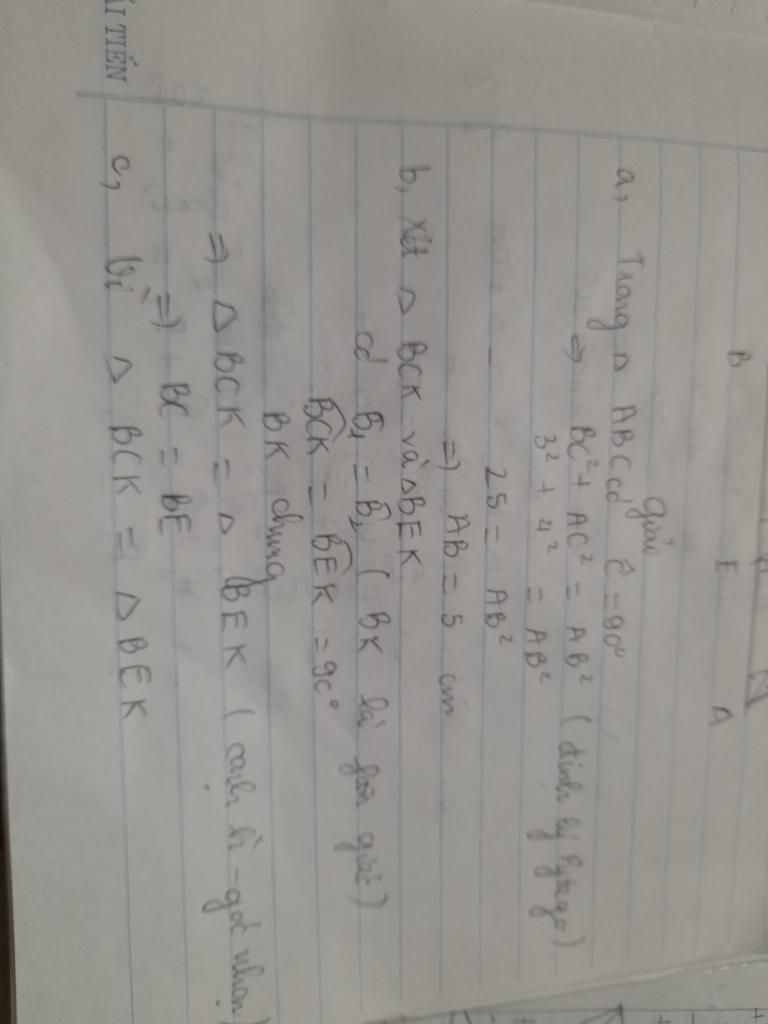 B E A
giải
a, Trong △ ABC có Ĉ = 90°
⇒ BC² + AC² = AB² (định lý Pytago)
3² + 4² = AB²
25 = AB²
⇒ AB = 5 cm
b, Xét △ BCK và △BEK
có B̂₁ = B̂₂ ( BK là fân giác )
BCK = BEK = 90°
BK chung
⇒ △ BCK = △ BEK ( cạnh h - góc nhọn )
⇒ BC = BE
c, Vì △ BCK = △ BEK
ẢI TIẾN